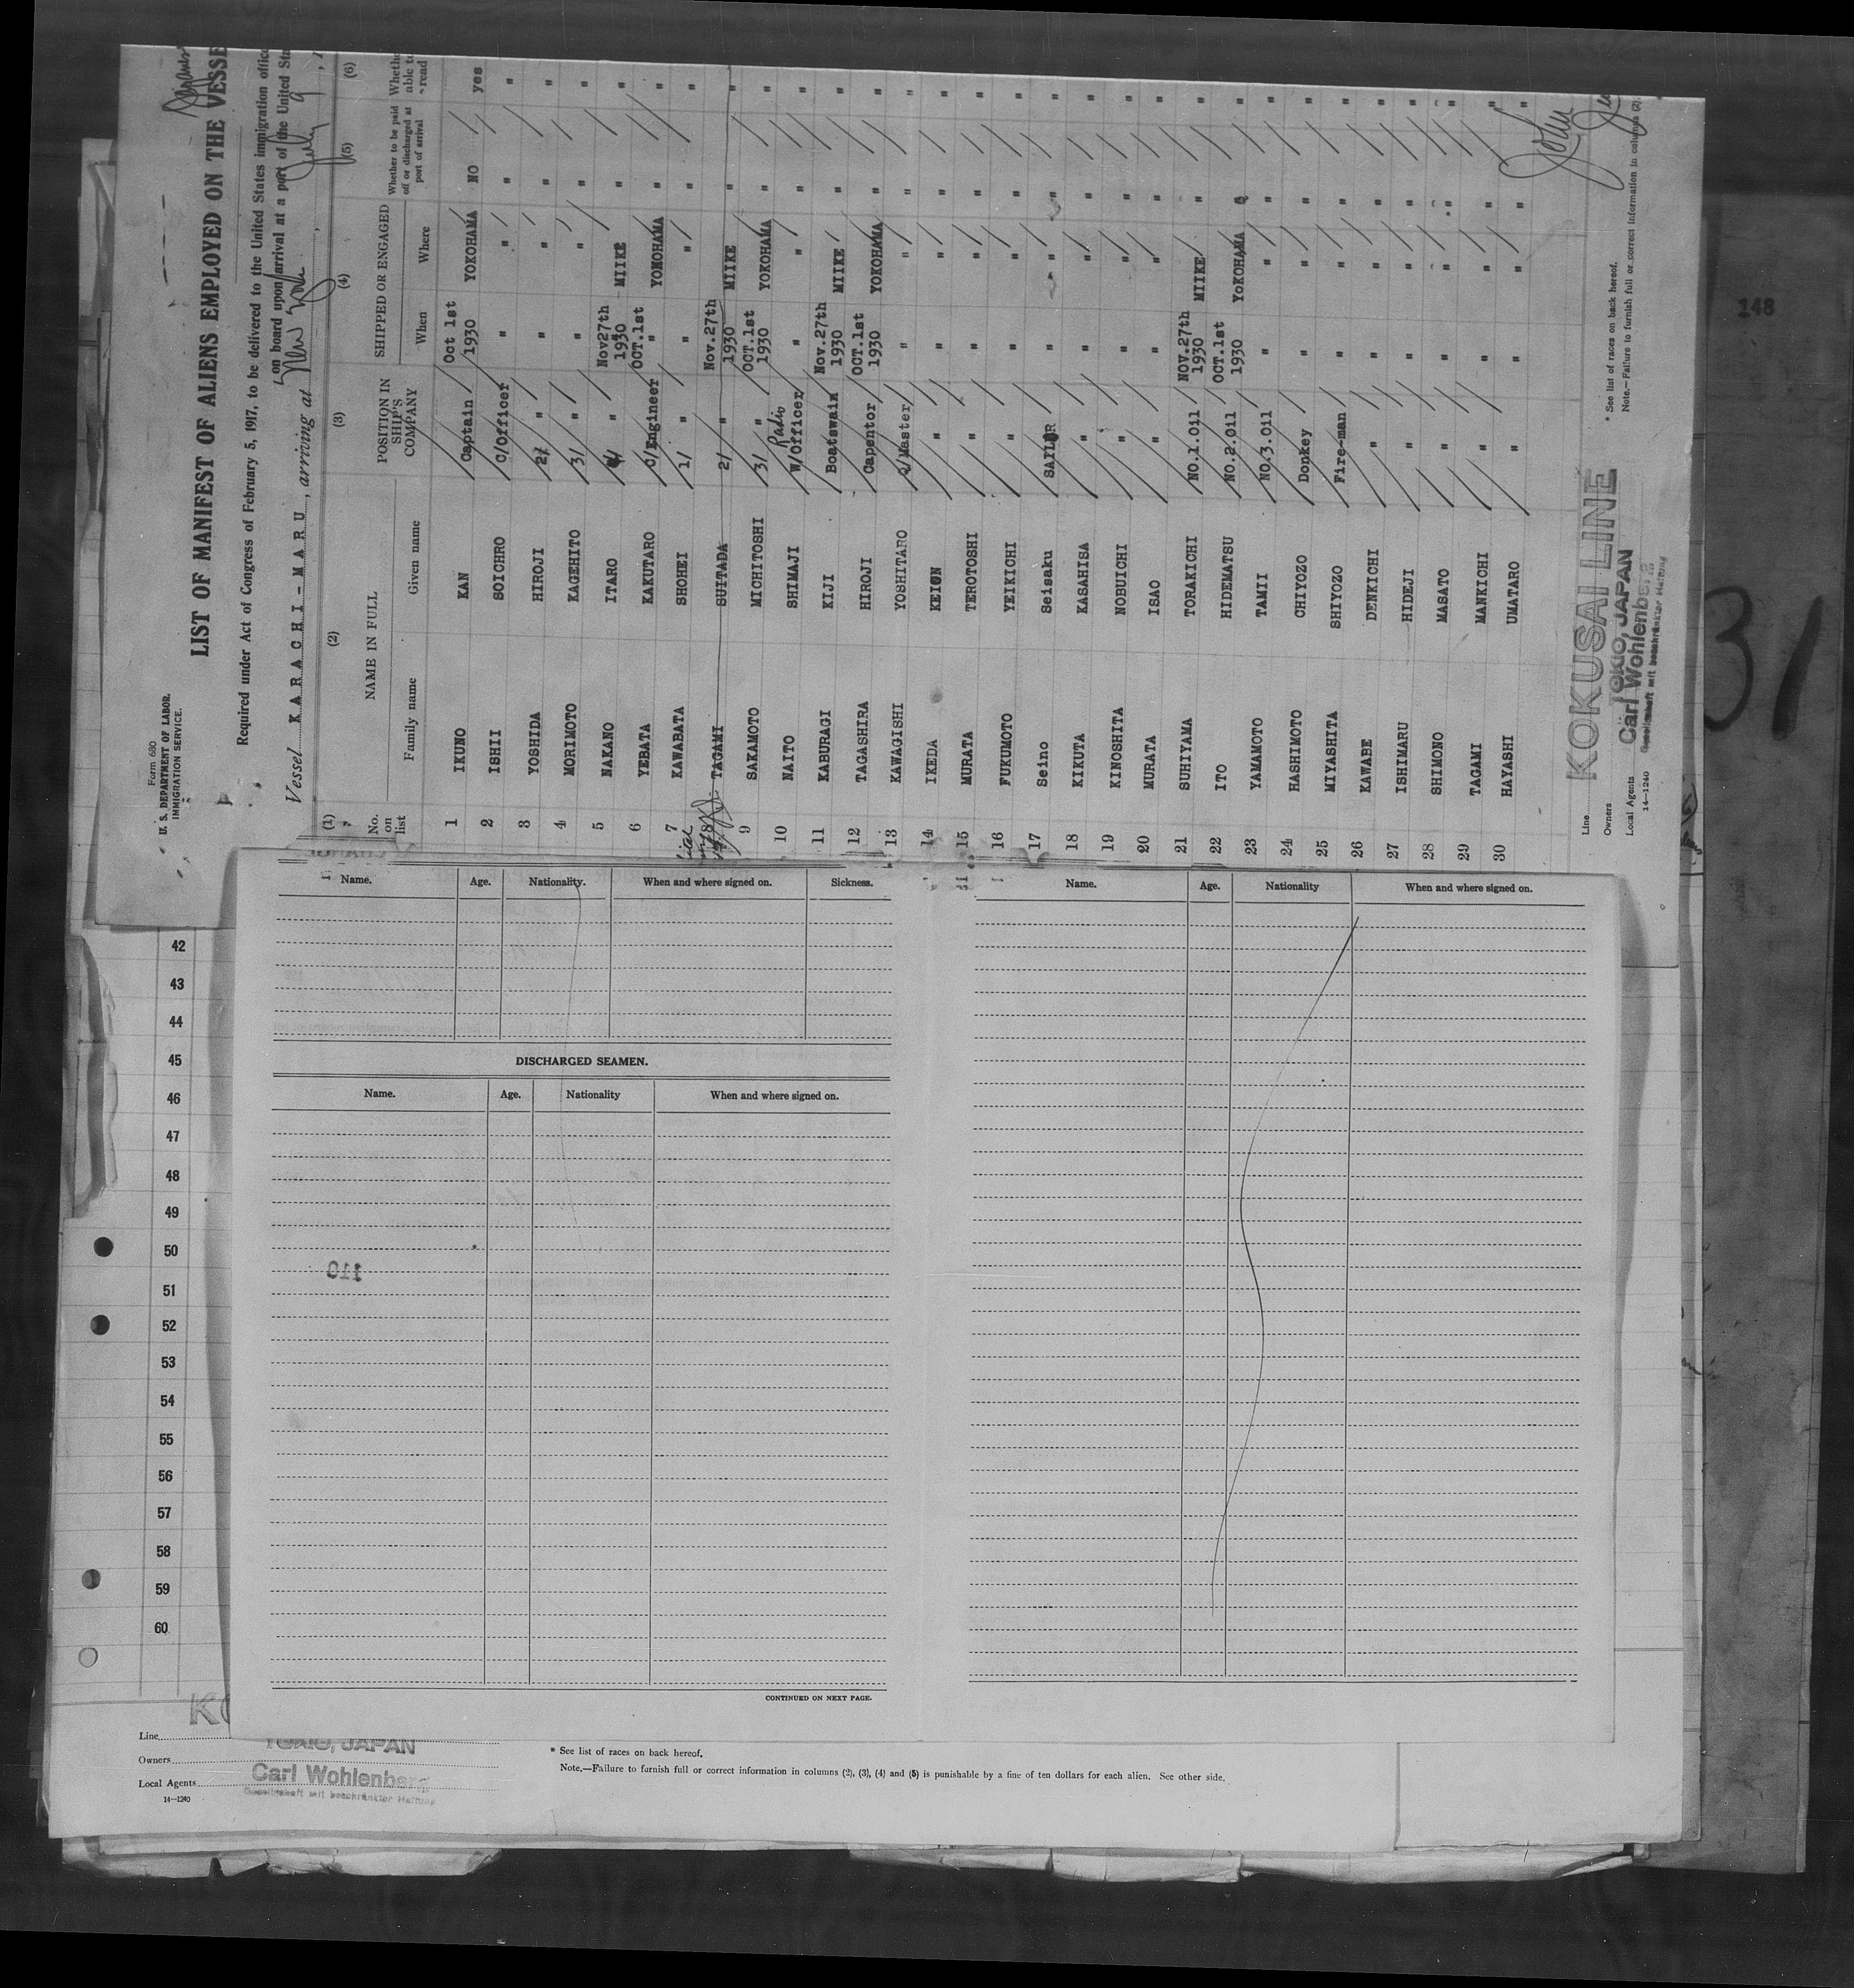 Form 680
U. S. DEPARTMENT OF LABOR
IMMIGRATION SERVICE.
LIST OF MANIFEST OF ALIENS EMPLOYED ON THE VESSE
Required under Act of Congress of February 5, 1917, to be delivered to the United States immigration offic
on board upon arrival at a port of the United Sta
Vessel KARACHI-MARU, arriving at New York, July 9, 1
(1) (2) (3) (4) (5) (6)
No. on list NAME IN FULL POSITION IN SHIP'S COMPANY SHIPPED OR ENGAGED Whether to be paid off or discharged at port of arrival Whethe able to read
Family name Given name When Where
1 IKUNO KAN Captain Oct 1st 1930 YOKOHAMA NO yes
2 ISHII SOICHRO C/Officer " " " "
3 YOSHIDA HIROJI 2/ " " " " "
4 MORIMOTO KAGEHITO 3/ " " " " "
5 NAKANO ITARO 4/ " Nov27th 1930 MIIKE " "
6 YEBATA KAKUTARO C/Engineer OCT.1st " YOMOHAMA " "
7 KAWABATA SHOHEI 1/ " " " " "
8 TAGAMI SUITADA 2/ " Nov.27th 1930 MIIKE " "
9 SAKAMOTO MICHITOSHI 3/ " OCT.1st 1930 YOKOHAMA " "
10 NAITO SHIMAJI Radio W/Officer " " " "
11 KABURAGI KIJI Boatswain Nov.27th 1930 MIIKE " "
12 TAGASHIRA HIROJI Capentor OCT.1st 1930 YOKOHAMA " "
13 KAWAGISHI YOSHITARO Q/Master " " " "
14 IKEDA KEION " " " " "
15 MURATA TEROTOSHI " " " " "
16 FUKUMOTO YEIKICHI " " " " "
17 Seino Seisaku SAILOR " " " "
18 KIKUTA KASAHISA " " " " "
19 KINOSHITA NOBUICHI " " " " "
20 MURATA ISAO " " " " "
21 SUHIYAMA TORAKICHI NO.1.Oil NOV.27th 1930 MIIKE " "
22 ITO HIDEMATSU NO.2.Oil OCT.1st 1930 YOKOHAMA " "
23 YAMAMOTO TAMII NO.3.Oil " " " "
24 HASHIMOTO CHIYOZO Donkey " " " "
25 MIYASHITA SHIYOZO Fire-man " " " "
26 KAWABE DENKICHI " " " " "
27 ISHIMARU HIDEJI " " " " "
28 SHIMONO MASATO " " " " "
29 TAGAMI MANKICHI " " " " "
30 HAYASHI UMATARO " " " " "
Line KOKUSAI LINE
Owners TOKIO, JAPAN
Local Agents Carl Wohlenberg
Gesellschaft mit beschränkter Haftung
14—1240
* See list of races on back hereof.
Note.—Failure to furnish full or correct information in columns (2),
John
148
31
Name. Age. Nationality. When and where signed on. Sickness.
DISCHARGED SEAMEN.
Name. Age. Nationality When and where signed on.
110
CONTINUED ON NEXT PAGE.
Name. Age. Nationality When and where signed on.
42
43
44
45
46
47
48
49
50
51
52
53
54
55
56
57
58
59
60
KO
Line
Owners TOKIO, JAPAN
Local Agents Carl Wohlenberg
Gesellschaft mit beschränkter Haftung
14—1240
* See list of races on back hereof.
Note.—Failure to furnish full or correct information in columns (2), (3), (4) and (5) is punishable by a fine of ten dollars for each alien. See other side.